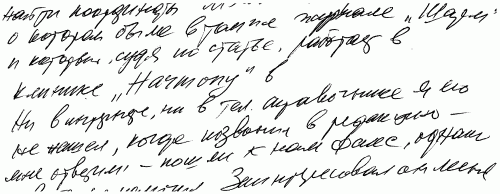 найти координаты
о котором была в журнале „Шаги"
и который, судя по статье, работает в
клинике „Начтопу" в
Ни в интернете, ни в тел. справочнике я его
не нашел, когда позвонил в редакцию –
мне ответили – пошли к нам факс, однако
Заинтересовал он меня